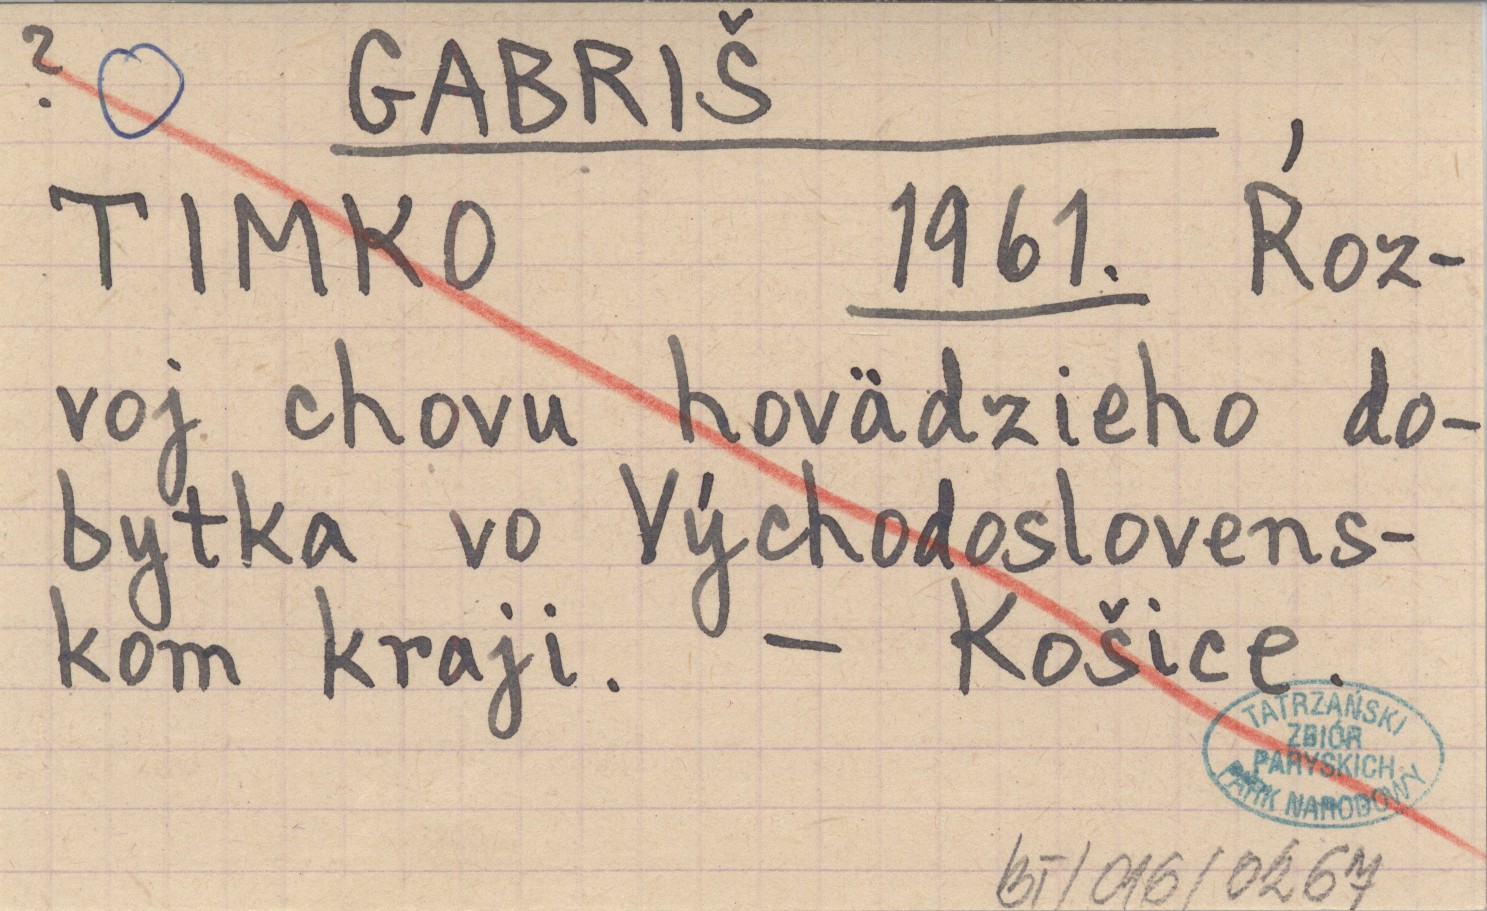 ?
GABRIŠ ,
TIMKO 1961. Roz-
voj chovu hovädzieho do-
bytka vo Východoslovens-
kom kraji. – Košice.
TATRZAŃSKI
ZBIÓR
PARYSKICH
PARK NARODOWY
BT/016/0267